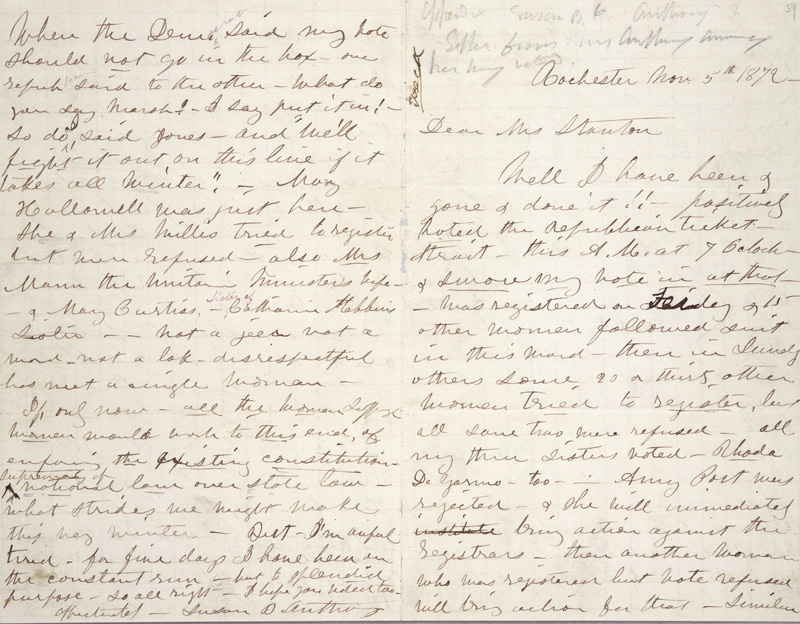 Susan B. Anthony
Letter from Miss Anthony
her voting
59
Rochester Nov 5th 1872
Dear Mrs Stanton
Well I have been &
gone & done it!! - positively
voted the Republican ticket -
strait - this A.M. at 7 Oclock -
& swore my vote in at that -
- was registered on Friday & 15
other women followed suit
in this ward - then in Sunday
others some 20 or thirty other
women tried to register, but
all save two were refused - all
my three sisters voted - Rhoda
De Garmo - too - Amy Post was
rejected - & she will immediately
institute bring action against the
registrars - then another woman
who was registered but vote refused
will bring action for that - Similar
When the Democrat said my vote
should not go in the box - one
repub said to the other - What do
you say Marsh? - I say put it in! -
So do I, said Jones - and "we'll
fight it out on this line if it
takes all winter". - Mary
Hallowell was just here -
She & Mrs Willis tried to register
but were refused - also Mrs
Mann the Unitarian Minister's wife -
- & Mary Curtiss, - sister of Catharine Stebbins
- - Not a jeer not a
word - not a look - disrespectful
has met a single woman -
If only now - all the Woman Suffrage
women would work to this end, of
enforcing the existing constitution -
supremacy of
national law over state law -
what strides we might make
this winter - But - I'm awful
tired - for five days I have been on
the constant run - but to splendid
purpose - So all right - I hope you voted too -
Affectionately - Susan B. Anthony